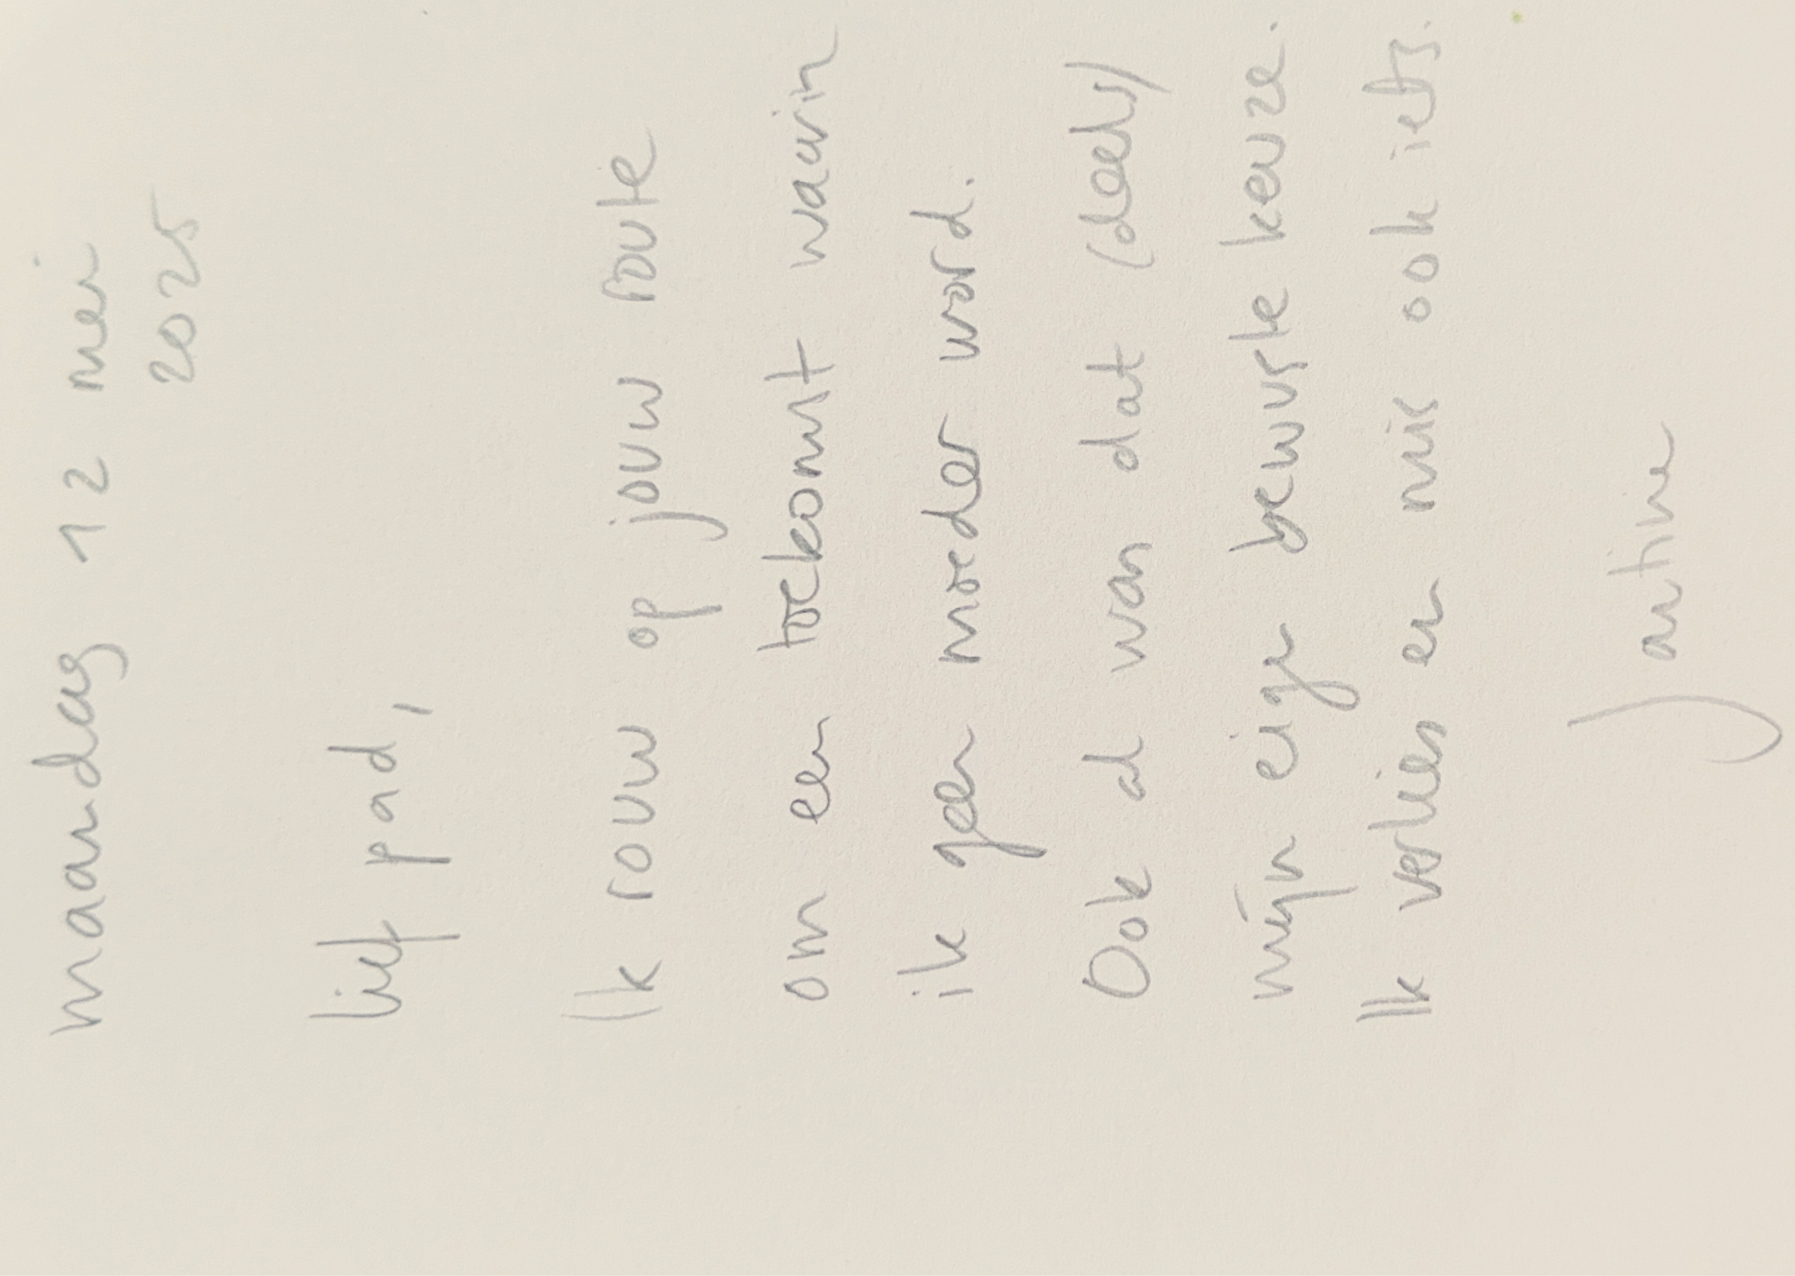 maandag 12 mei
2025
lief pad,
Ik rouw op jouw route
om een toekomst waarin
ik geen moeder word.
Ook al was dat (deels)
mijn eigen bewuste keuze.
Ik verlies en mis ook iets.
Jantine